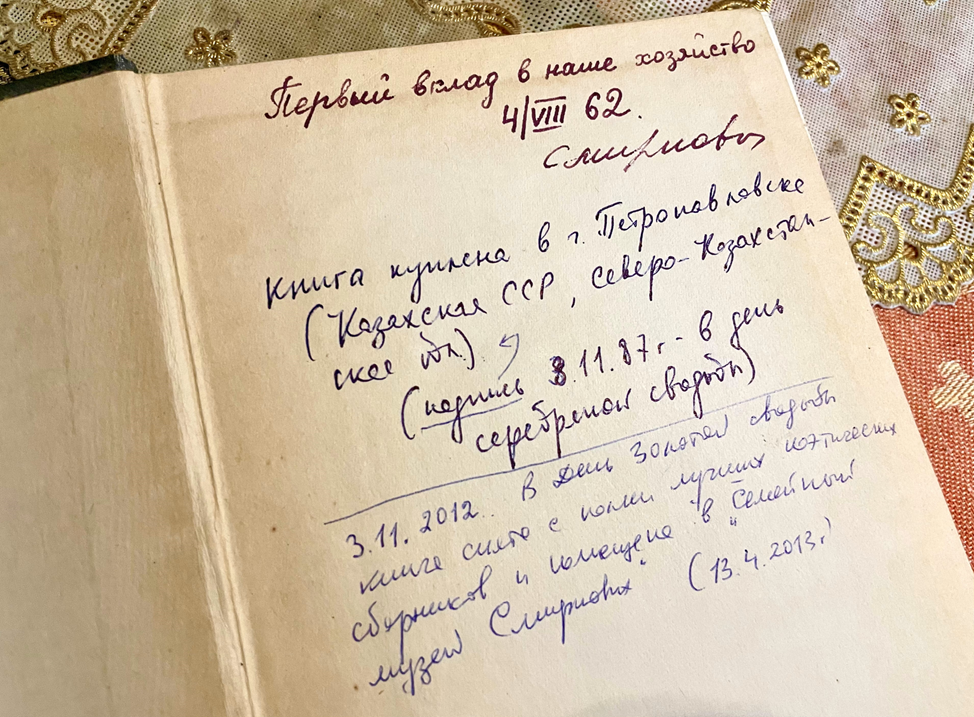 Первый вклад в наше хозяйство
4/VIII 62.
Смирновы
Книга куплена в г. Петропавловске
(Казахская ССР, Северо-Казахстан-
ская обл.)
(надпись 3.11.87г. - в день
серебряной свадьбы)
3.11.2012. В День Золотой свадьбы
книга снята с полки лучших поэтических
сборников и помещена в "Семейный
музей Смирновых" (13.4.2013г)